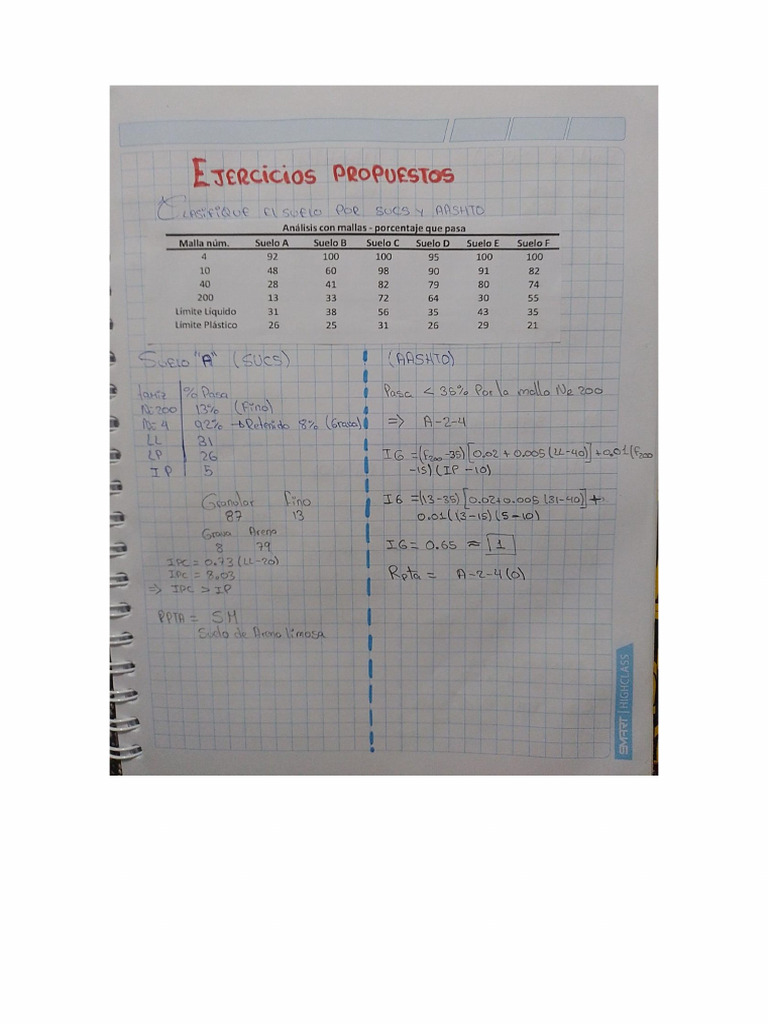 EJERCICIOS PROPUESTOS
CLASIFIQUE EL SUELO POR SUCS Y AASHTO
Análisis con mallas - porcentaje que pasa
Malla núm. Suelo A Suelo B Suelo C Suelo D Suelo E Suelo F
4 92 100 100 95 100 100
10 48 60 98 90 91 82
40 28 41 82 79 80 74
200 13 33 72 64 30 55
Límite Líquido 31 38 56 35 43 35
Límite Plástico 26 25 31 26 29 21
SUELO "A" (SUCS)
tamiz % Pasa
Nº200 13% (Fino)
Nº4 92% → Retenido 8% (Grava)
LL 31
LP 26
IP 5
Granular Fino
87 13
Grava Arena
8 79
IPC = 0.73 (LL-20)
IPC = 8.03
⇒ IPC > IP
RPTA = SM
Suelo de Arena limosa
(AASHTO)
Pasa < 35% Por la malla Nº 200
⇒ A-2-4
IG = (F200-35) [0.02 + 0.005 (LL-40)] + 0.01 (F200
-15) (IP - 10)
IG = (13-35) [0.02+0.005 (31-40)] +
0.01 ((3-15) (5-10)
IG = 0.65 ≈ 1
Rpta = A-2-4(0)
SMART | HIGHCLASS